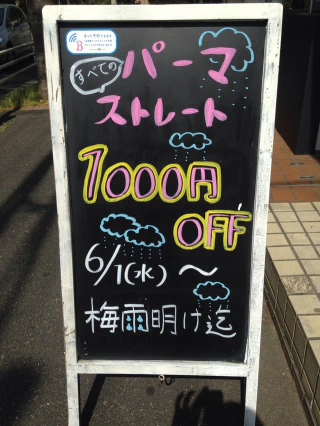 すべての
パーマ
ストレート
1000円
OFF
6/1(水)～
梅雨明け迄